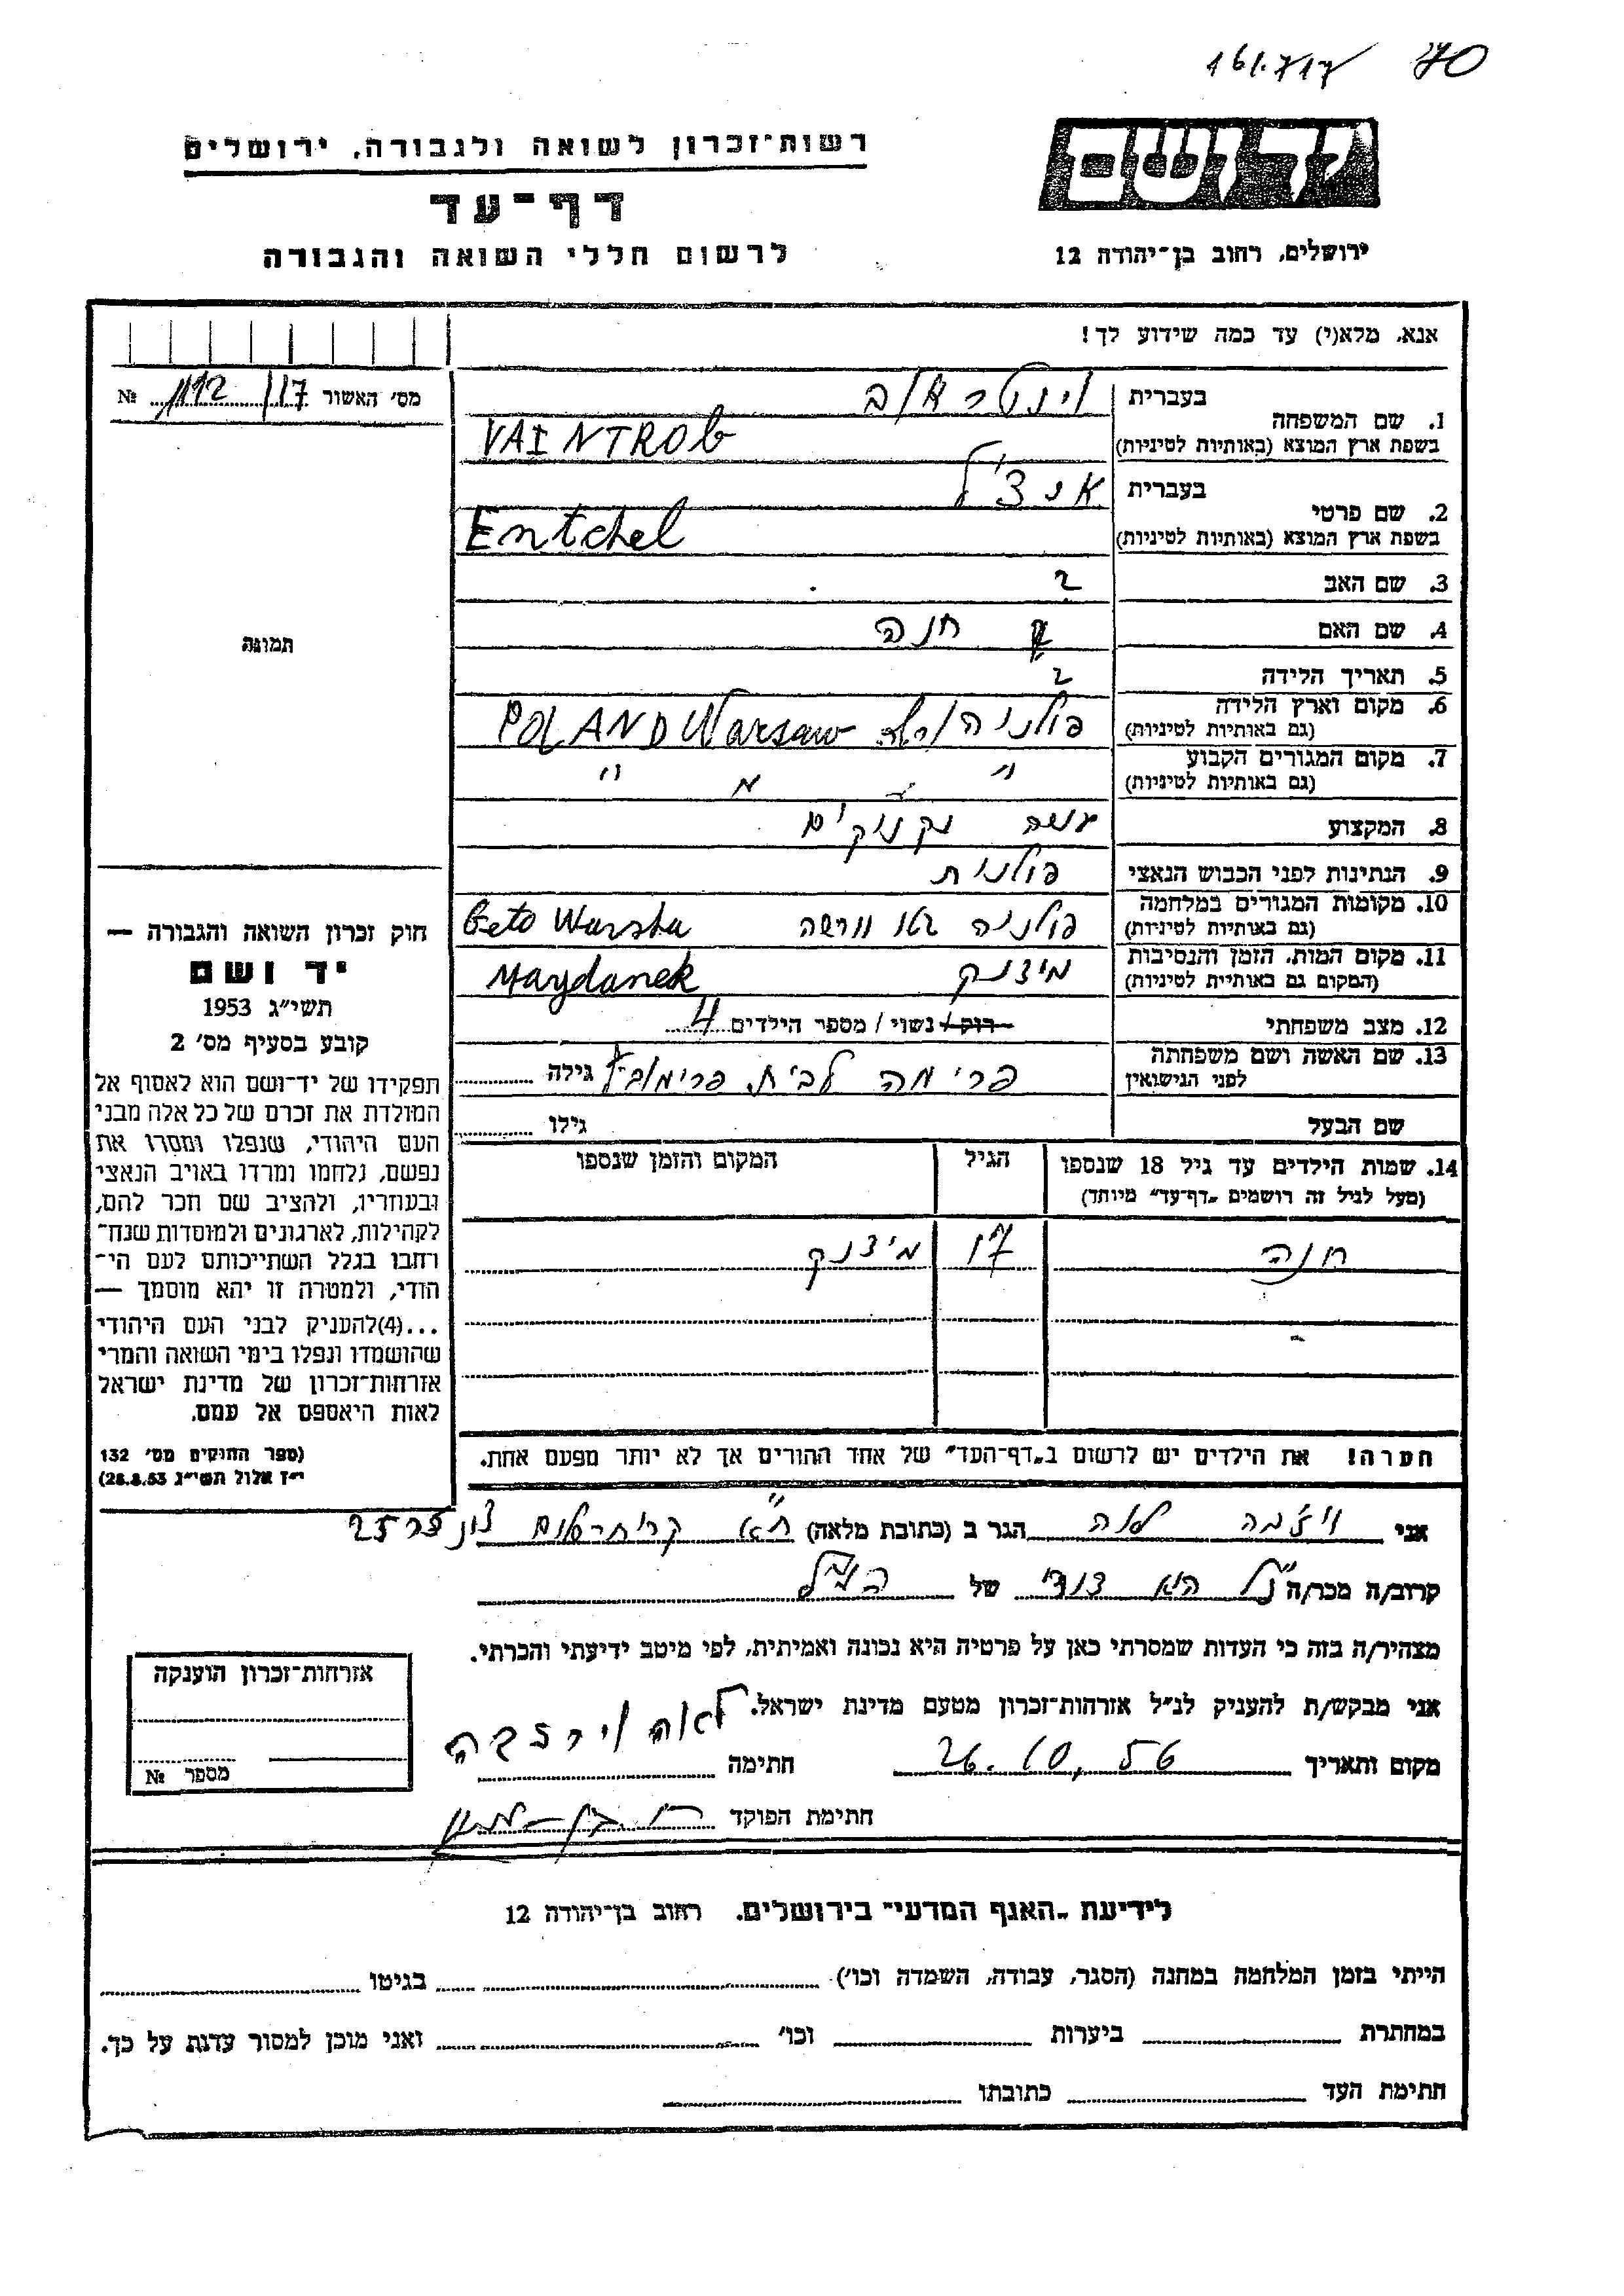 70
161.717
רשות־זכרון לשואה ולגבורה, ירושלים
דף־עד
לרשום חללי השואה והגבורה
יד ושם
ירושלים, רחוב בן־יהודה 12
אנא, מלא(י) עד כמה שידוע לך!
מס׳ האשור 117 / №
תמונה
1. שם המשפחה
בעברית
וינטראוב
בשפת ארץ המוצא (באותיות לטיניות)
VAINTROB
2. שם פרטי
בעברית
אנצ׳ל
בשפת ארץ המוצא (באותיות לטיניות)
Entchel
3. שם האב ?
4. שם האם חנה
5. תאריך הלידה ?
6. מקום וארץ הלידה
(גם באותיות לטיניות)
פולניה ורשה POLAND Warsaw
7. מקום המגורים הקבוע
(גם באותיות לטיניות)
" "
8. המקצוע עושה נקניקים
9. הנתינות לפני הכבוש הנאצי פולנית
10. מקומות המגורים במלחמה
(גם באותיות לטיניות)
פולניה גטו וורשה Geto Warsha
11. מקום המות, הזמן והנסיבות
(המקום גם באותיות לטיניות)
מידנק Maydanek
12. מצב משפחתי רוק / נשוי / מספר הילדים 4
13. שם האשה ושם משפחתה
לפני הנישואין
פרימה לבית גילה
שם הבעל גילו
14. שמות הילדים עד גיל 18 שנספו
(מעל לגיל זה רושמים „דף־עד" מיוחד)
הגיל
המקום והזמן שנספו
חנה 17 מידנק
הערה! את הילדים יש לרשום ב„דף־העד" של אחד ההורים אך לא יותר מפעם אחת.
חוק זכרון השואה והגבורה —
יד ושם
תשי״ג 1953
קובע בסעיף מס׳ 2
תפקידו של יד־ושם הוא לאסוף אל
המולדת את זכרם של כל אלה מבני
העם היהודי, שנפלו ומסרו את
נפשם, נלחמו ומרדו באויב הנאצי
ובעוזריו, ולהציב שם וזכר להם,
לקהילות, לארגונים ולמוסדות שנח־
רחבו בגלל השתייכותם לעם הי־
הודי, ולמטרה זו יהא מוסמך —
...(4)להעניק לבני העם היהודי
שהושמדו ונפלו בימי השואה והמרי
אזרחות־זכרון של מדינת ישראל
לאות היאספם אל עמם.
(ספר החוקים מס׳ 132
י״ז אלול תשי״ג 28.8.53)
אני לאה הגר ב (כתובת מלאה) ת״א
קרוב/ה מכר/ה של הנ״ל
מצהיר/ה בזה כי העדות שמסרתי כאן על פרטיה היא נכונה ואמיתית, לפי מיטב ידיעתי והכרתי.
אני מבקש/ת להעניק לנ״ל אזרחות־זכרון מטעם מדינת ישראל.
מקום ותאריך 26.10.56 חתימה לאה
חתימת הפוקד
אזרחות־זכרון הוענקה
מספר №
לידיעת „האגף המדעי" בירושלים, רחוב בן־יהודה 12
הייתי בזמן המלחמה במחנה (הסגר, עבודה, השמדה וכו׳) בגיטו
במחתרת ביערות וכו׳ ואני מוכן למסור עדות על כך.
חתימת העד כתובתו